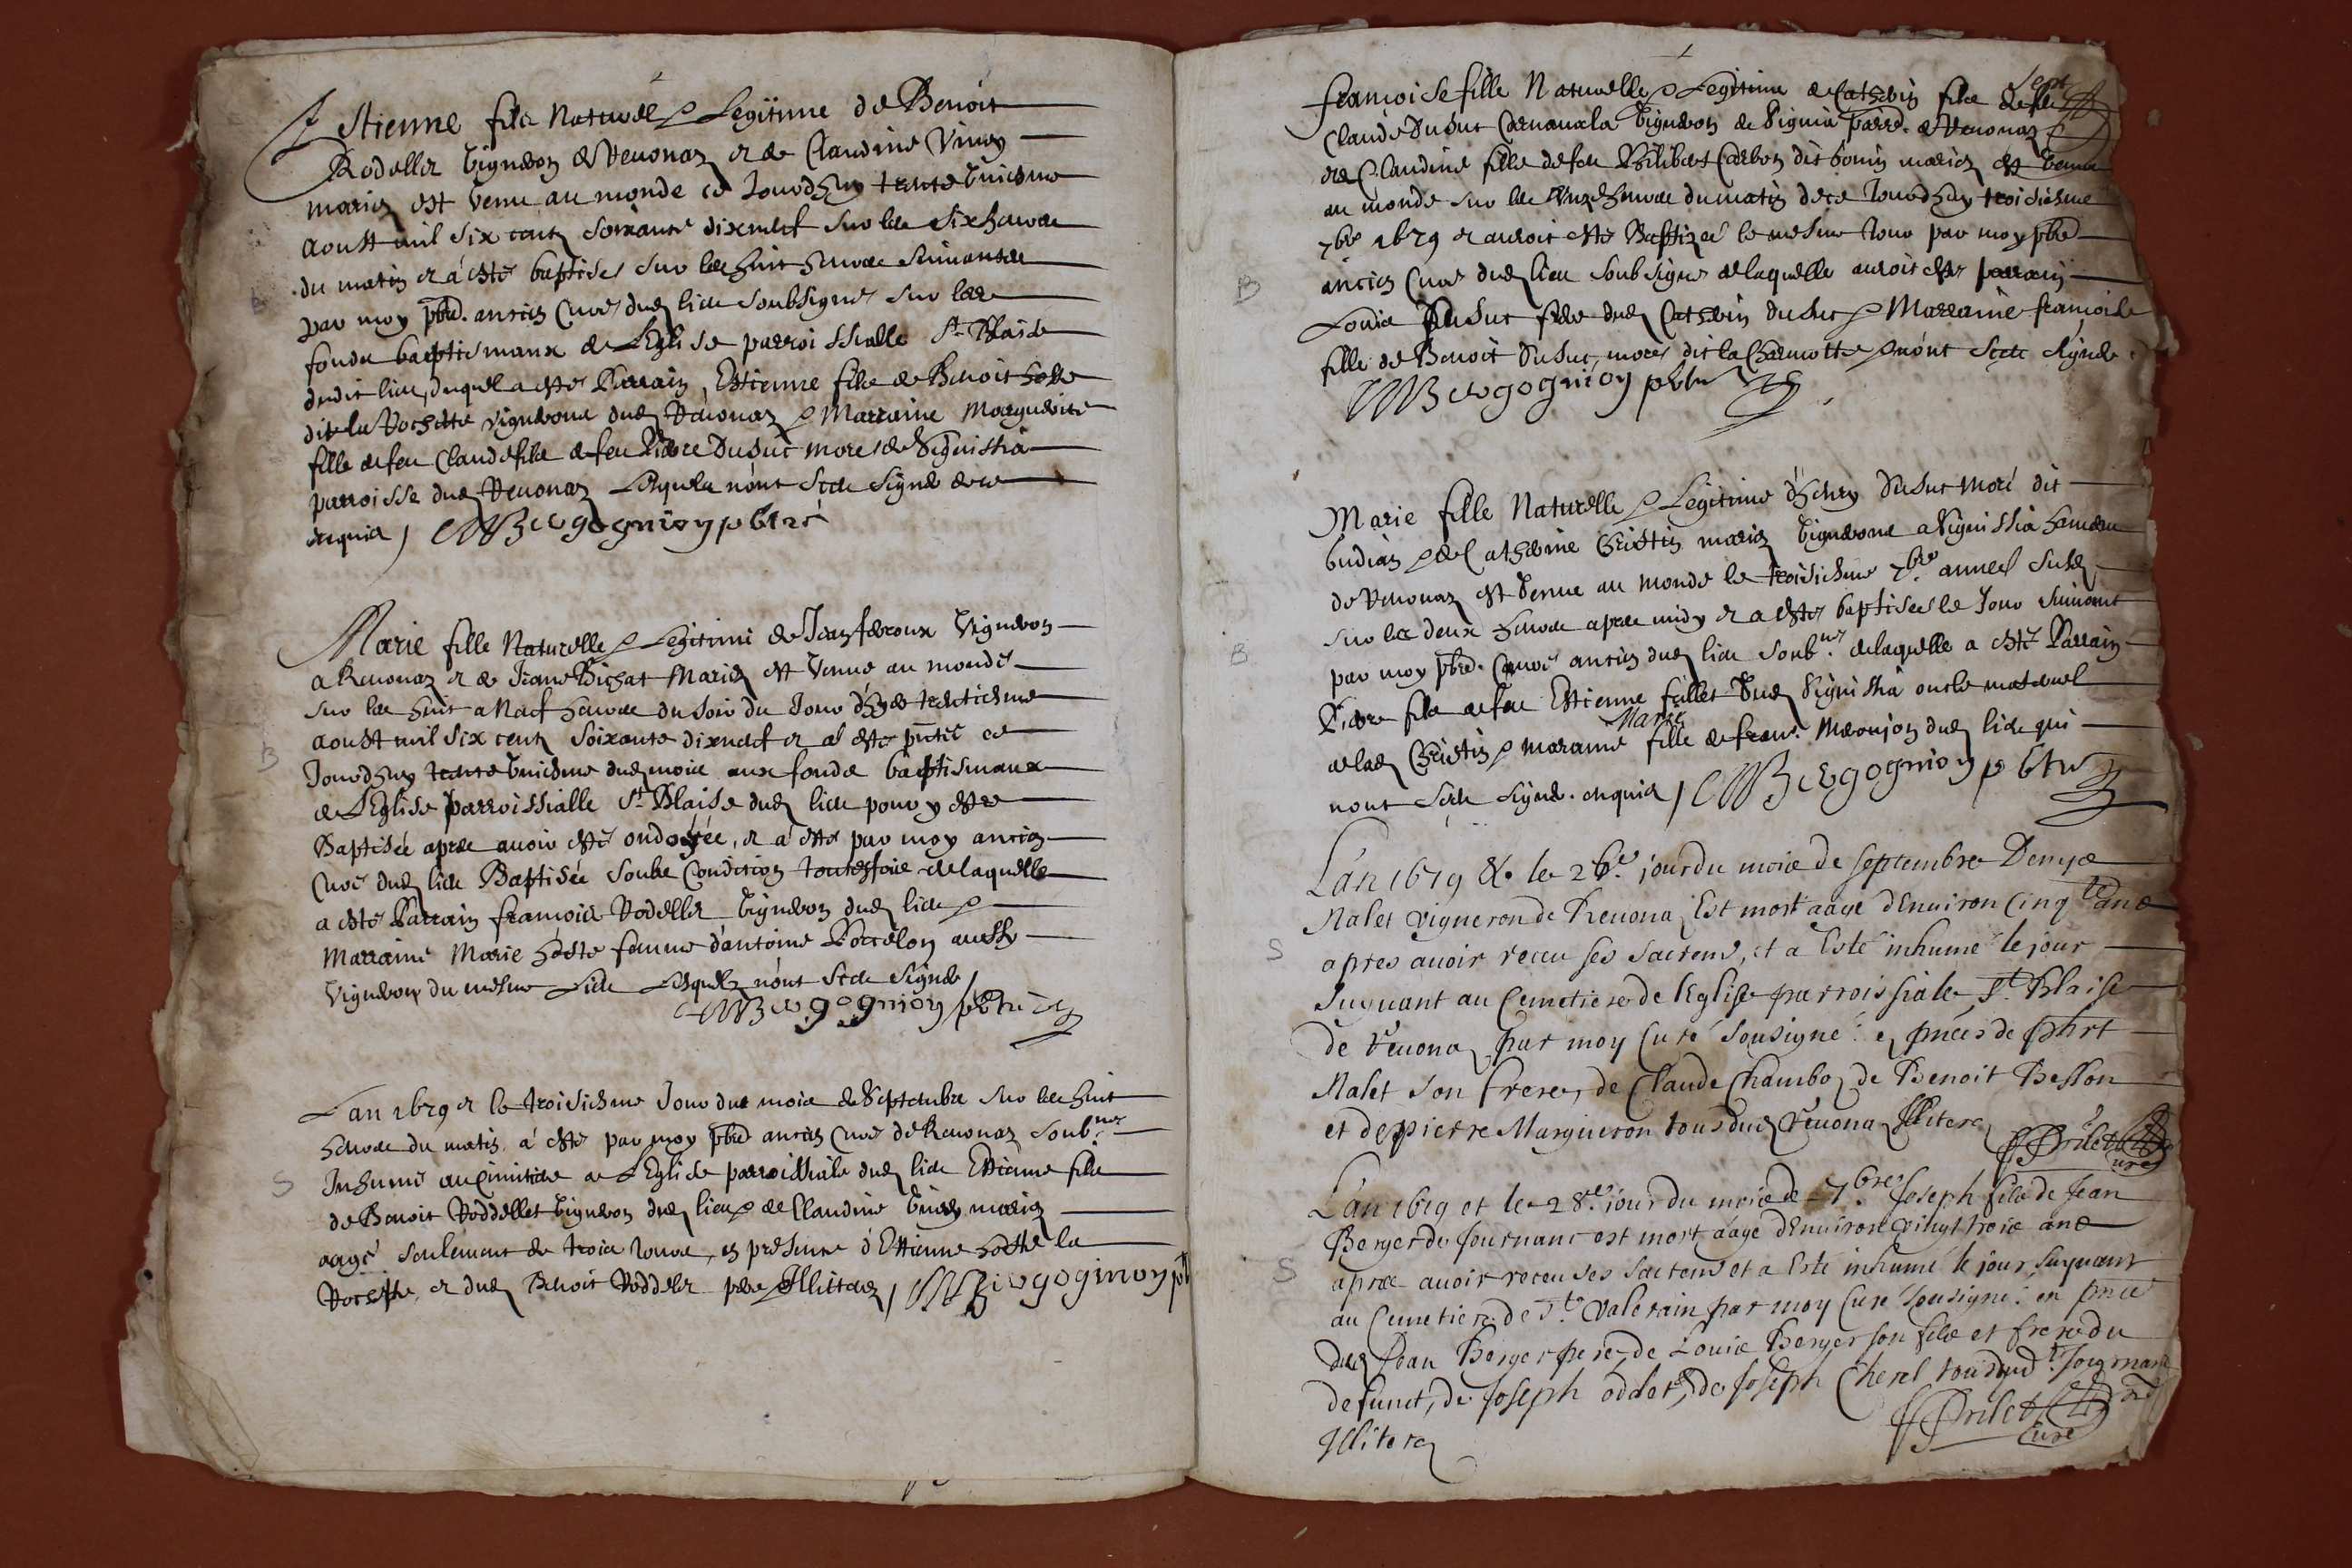 Estienne filz Naturel & Legitime de Benoit
Rodellet vigneron de Revonaz et de Claudine
mariez est venu au monde ce Jourdhuy trente uniesme
aoust mil six centz soixante dixneuf sur les six heures
du matin et a esté baptisé sur les huit heures suivantes
par moy pbre. ancien Curé dud lieu soubsigné sur les
fonds baptismaux de Leglise parroissialle St Blaise
dudit lieu, duquel a esté Parrain, Estienne filz de Benoit hoste
dit la Rochette vigneron dud Revonaz & Marraine Marguerite
fille de feu Claude filz de feu Pierre Dusuc more de
parroisse dud Revonaz Lesquelz n'ont sceu signé de ce
enquis /
Marie fille Naturelle & Legitime de Jean feroux Vigneron
a Revonaz et de Jeane Bichat Mariez est venue au monde
sur les huit a Neuf heures du soir du Jour d'hyer trentiesme
aoust mil six centz soixante dixneuf et a esté
Jourdhuy trente uniesme dud mois aux fonds baptismaux
de LEglise parroissialle St Blaise dud lieu pour y estre
Baptisée apres avoir esté ondoyée, et a esté par moy ancien
Curé dud lieu Baptisée soubz Condition toutesfois de laquelle
a esté Parrain francois Rodellet vigneron dud lieu &
Marraine Marie hoste femme d'antoine aussy
Vigneron du mesme Lieu Lesquelz n'ont sceu signé /
Lan 1679 et le troisiesme Jour du mois de Septembre sur les huit
heures du matin a esté par moy pbre ancien Curé de Revonaz soubné
Inhumé au Cimitiere de LEglise parroissiale dud lieu Estienne filz
de Benoit Roddellet vigneron dud lieu & de Claudine mariez
aagé seulement de trois Jours, en presence d'Estienne hoste la
Rochette, et dud Benoit Roddellet pere Illiterez /
Sept
francoise fille Naturelle & Legitime de Catherin filz de feu
Claude Dusuc vigneron de parro. de Revonaz
et de Claudine fille de feu Philibert Carbon dit mariez est venue
au monde sur les unze heures du matin de ce Jourdhuy troisiesme
7bre 1679 et auroit esté Baptizée le mesme Jour par moy pbre
ancien Curé dud lieu soubsigné de laquelle auroit esté parrain
Louis Dusuc filz dud Catherin Dusuc & Marraine francoise
fille de Benoit Dusuc, more dit la & n'ont sceu signé
Marie fille Naturelle & Legitime Dusuc Moré dit
& de Catherine Christin mariez vignerons a hameau
de Revonaz est venue au monde le troisiesme 7bre. annee susd
sur les deux heures apres midy et a esté baptisée le Jour suivant
par moy pbre. Curé ancien dud lieu soubné. de laquelle a esté Parrain
Pierre filz de feu Estienne fillet dud oncle maternel
de lad Christin & marraine Marie fille de dud lieu qui
n'ont sceu signé. enquis /
L'an 1679 & le 26e. jour du mois de septembre Denys
Nalet vigneron de Revona, Est mort aagé d'Environ Cinqte ans
apres avoir receu ses sacrems, et a Esté inhumé le jour
suyvant au Cemetiere de l'Eglise parroissiale St. Blaise
de Revona, par moy Curé sousigné: en pnces de phrt
Nalet son frere, de Claude Chambo, de Benoit Besson
et de pierre Margueron tous dud Revona Illiterez
Curé
L'an 1679 et le 28e. jour du mois de 7bre Joseph filz de Jean
Berger de Journanc est mort aagé d'Environ vingt trois ans
apres avoir receu ses sacrems et a Esté inhumé le jour suyvant
au Cemetiere de St. Valerain par moy Curé sousigné: en pnce
dud Jean Berger pere, de Louis Berger son filz et frere du
defunct, de Joseph oddet, de Joseph Cherel tous dud.
Illiterez
Curé